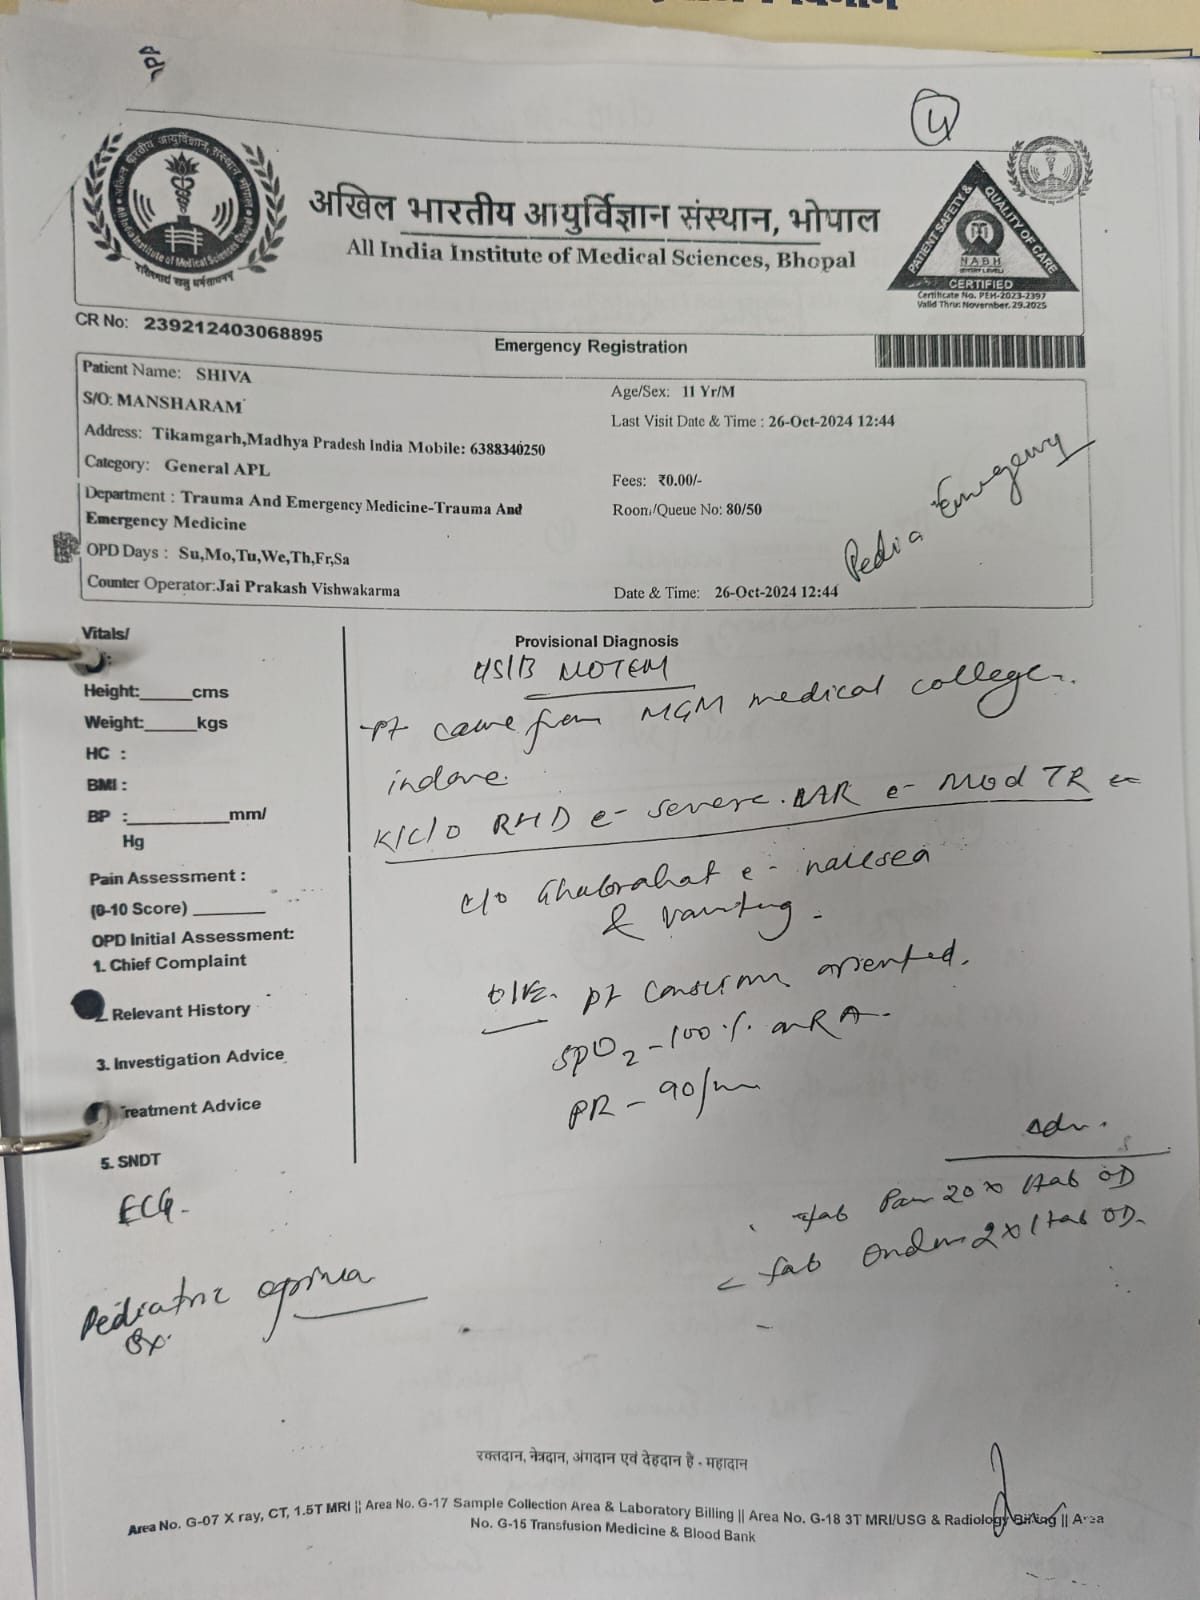 4
अखिल भारतीय आयुर्विज्ञान संस्थान, भोपाल
All India Institute of Medical Sciences, Bhopal
PATIENT SAFETY & QUALITY OF CARE
NABH
CERTIFIED
Certificate No. PEH-2023-2397
Valid Thru: November, 29.2025
CR No: 239212403068895
Emergency Registration
Patient Name: SHIVA
Age/Sex: 11 Yr/M
S/O: MANSHARAM
Last Visit Date & Time : 26-Oct-2024 12:44
Address: Tikamgarh,Madhya Pradesh India Mobile: 6388340250
Category: General APL
Fees: ₹0.00/-
Department : Trauma And Emergency Medicine-Trauma And
Emergency Medicine
Room/Queue No: 80/50
Pedia Emergency
OPD Days : Su,Mo,Tu,We,Th,Fr,Sa
Counter Operator:Jai Prakash Vishwakarma
Date & Time: 26-Oct-2024 12:44
Vitals/
Provisional Diagnosis
Height:______cms
Weight:______kgs
HC :
BMI :
BP :__________mm/
Hg
Pain Assessment :
(0-10 Score) ________
OPD Initial Assessment:
1. Chief Complaint
Relevant History
3. Investigation Advice
Treatment Advice
5. SNDT
S/B MOTEM
Pt came from MGM medical college
indore.
K/C/O RHD c- severe MR c- Mod TR
c/o Ghabrahat c- nausea
& vomiting.
O/E. pt conscious oriented.
SPO2 - 100 % on RA.
PR - 90/m
ECG.
Adv.
tab Pan 20 x 1tab OD
tab Ondem 2 x 1tab OD.
Pediatric opinion
रक्तदान, नेत्रदान, अंगदान एवं देहदान है - महादान
Area No. G-07 X ray, CT, 1.5T MRI || Area No. G-17 Sample Collection Area & Laboratory Billing || Area No. G-18 3T MRI/USG & Radiology Billing || Area
No. G-15 Transfusion Medicine & Blood Bank